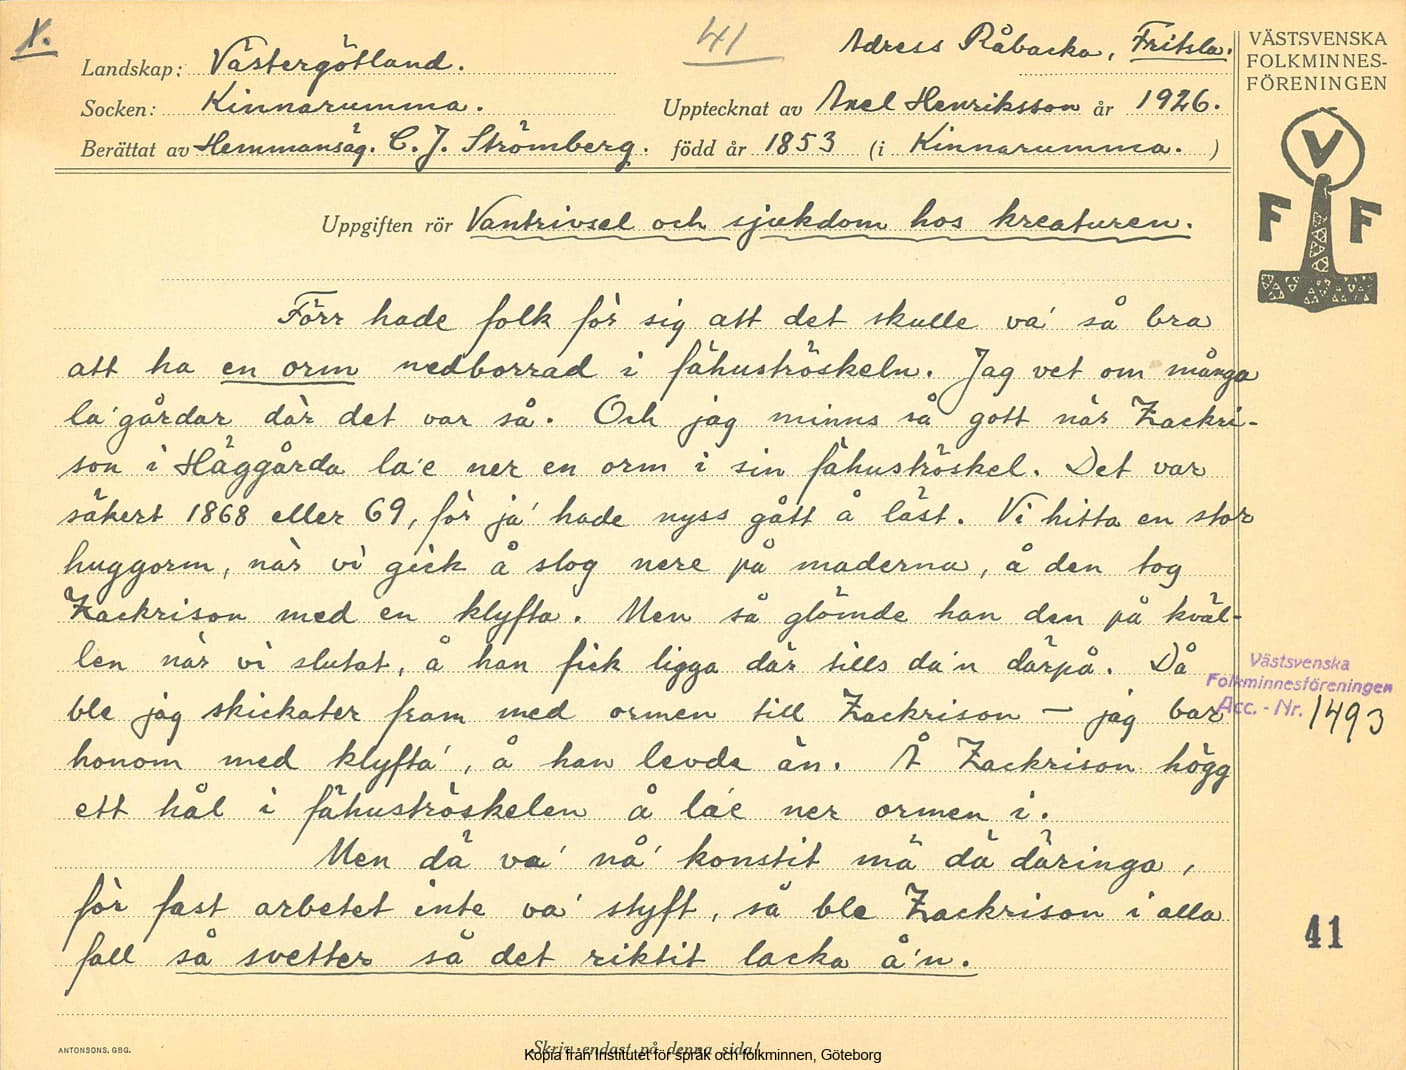 X.
41
Adress Råbacka, Fritsla.
Landskap: Västergötland.
Socken: Kinnarumma.
Upptecknat av Axel Henriksson år 1926.
Berättat av Hemmansäg. C. J. Strömberg. född år 1853 (i Kinnarumma. )
VÄSTSVENSKA
FOLKMINNES-
FÖRENINGEN
V
F F
Uppgiften rör Vantrivsel och sjukdom hos kreaturen.
Förr hade folk för sig att det skulle va' så bra
att ha en orm nedborrad i fähuströskeln. Jag vet om många
la'gårdar där det var så. Och jag minns så gott när Zackri-
son i Häggårda la'e ner en orm i sin fähuströskel. Det var
säkert 1868 eller 69, för ja' hade nyss gått å läst. Vi hitta en stor
huggorm, när vi gick å slog nere på maderna, å den tog
Zackrison med en klyfta. Men så glömde han den på kväl-
len när vi slutat, å han fick ligga där tills da'n därpå. Då
ble jag skickater fram med ormen till Zackrison — jag bar
honom med klyfta', å han levde än. Å Zackrison högg
ett hål i fähuströskelen å la'e ner ormen i.
Men dä va' nå' konstit mä dä däringa,
för fast arbetet inte va' styft, så ble Zackrison i alla
fall så svetter så det riktit lacka å'n.
Västsvenska
Folkminnesföreningen
Acc. - Nr. 1493
41
ANTONSONS, GBG.
Skriv endast på denna sida!
Kopia från Institutet för språk och folkminnen, Göteborg